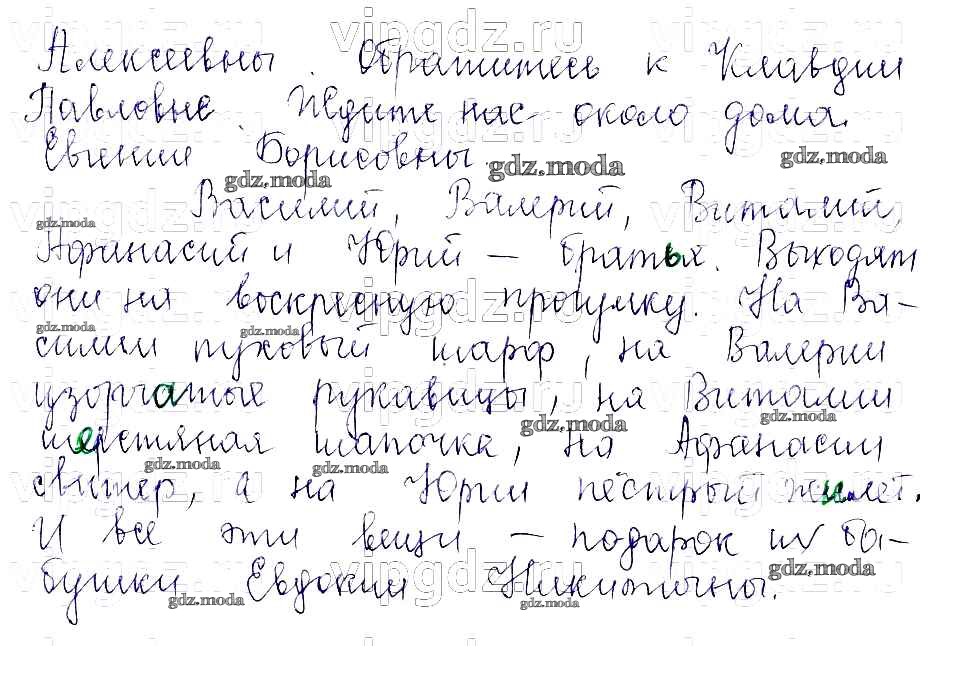 Алексеевны. Обратитесь к Клавдии
Павловне. Ждите нас около дома
Евгении Борисовны.
Василий, Валерий, Виталий,
Афанасий и Юрий – братья. Выходят
они на воскресную прогулку. На Ва-
силии пуховый шарф, на Валерии
узорчатые рукавицы, на Виталии
шерстяная шапочка, на Афанасии
свитер, а на Юрии пёстрый жилет.
И все эти вещи – подарок их ба-
бушки Евдокии Никитичны.
vipgdz.ru
gdz.moda